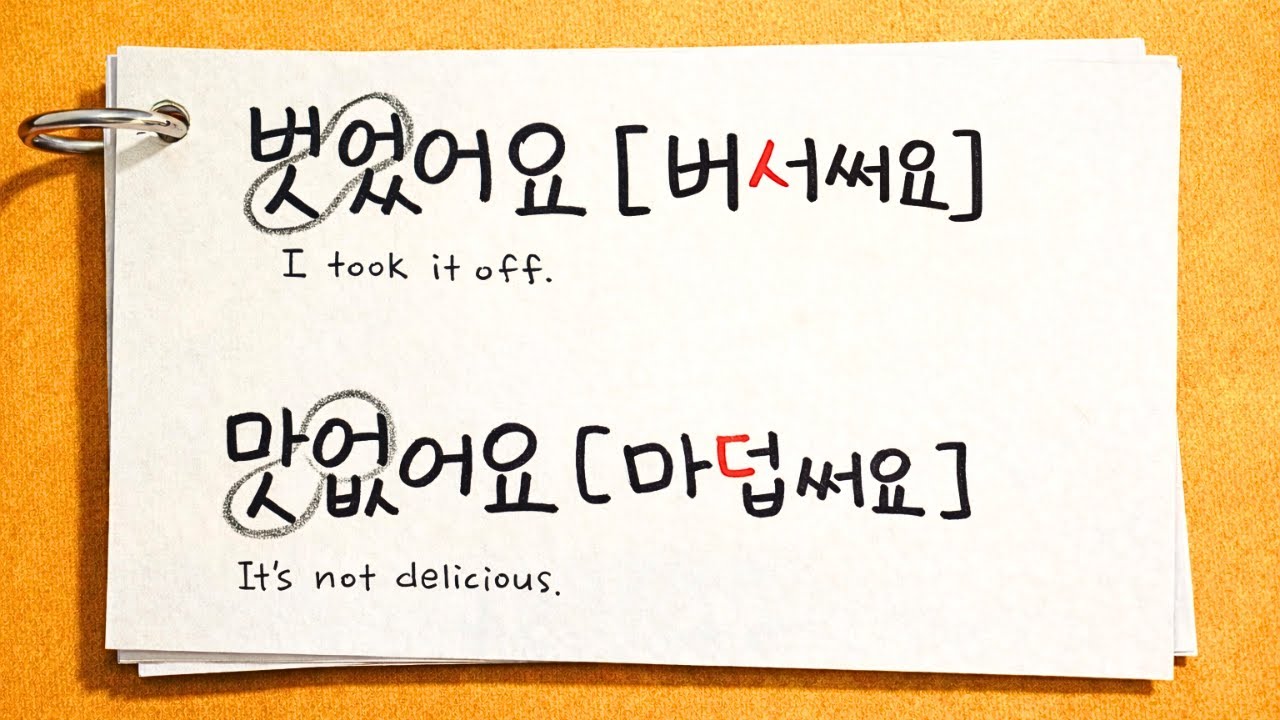 벗었어요 [버서써요]
I took it off.
맛없어요 [마덥써요]
It's not delicious.